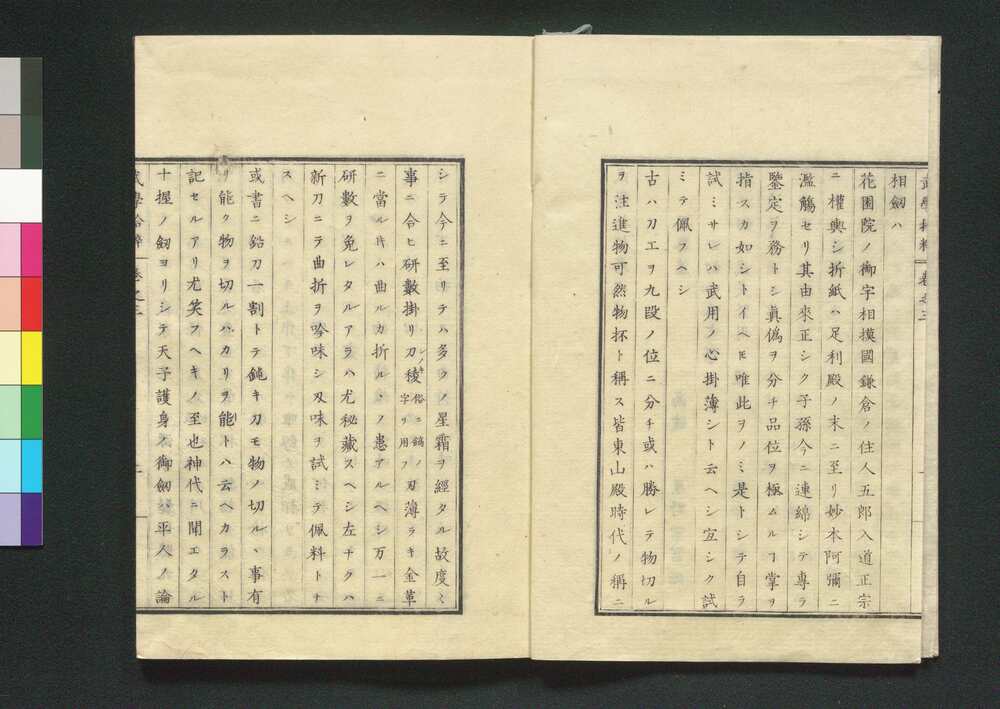 相劒ハ
花園院ノ御字相摸國鎌倉ノ住人五郎入道正宗
ニ權輿シ折紙ハ足利殿ノ末ニ至リ妙本阿彌ニ
濫觴セリ其由來正シク子孫今ニ連綿シテ專ラ
鑒定ヲ務トシ眞僞ヲ分チ品位ヲ極ムルヿ掌ヲ
指スカ如シトイヘ𪜈唯此ヲノミ是トシテ自ラ
試ミサレハ武用ノ心掛薄シト云ヘシ宜シク試
ミテ佩フヘシ
古ハ刀工ヲ九段ノ位ニ分チ或ハ勝レテ物切ル
ヲ注進物可然物抔ト稱ス皆東山殿時代ノ稱ニ
シテ今ニ至リテハ多クノ星霜ヲ經タル故度ミ
事ニ合ヒ研數掛リ刀稜シノキ俗ニ鎬ノ字リ用フ刃薄ラキ金革
ニ當ル時ハ曲ルカ折ルヽノ患アルヘシ万一ニ
研數ヲ免レタルアラハ尤秘藏スヘシ左ナクハ
新刀ニテ曲折ヲ吟味シ刄味ヲ試ミテ佩料トナ
スヘシ
或書ニ鉛刀一割トテ鈍キ刀モ物ノ切ルヽ事有
リ能ク物ヲ切ルハカリヲ能トハ云ヘカラスト
記セルアリ尤笑フヘキノ至也神代ニ聞エタル
十握ノ劒ヨリシテ天子護身ノ御劒平人ノ論